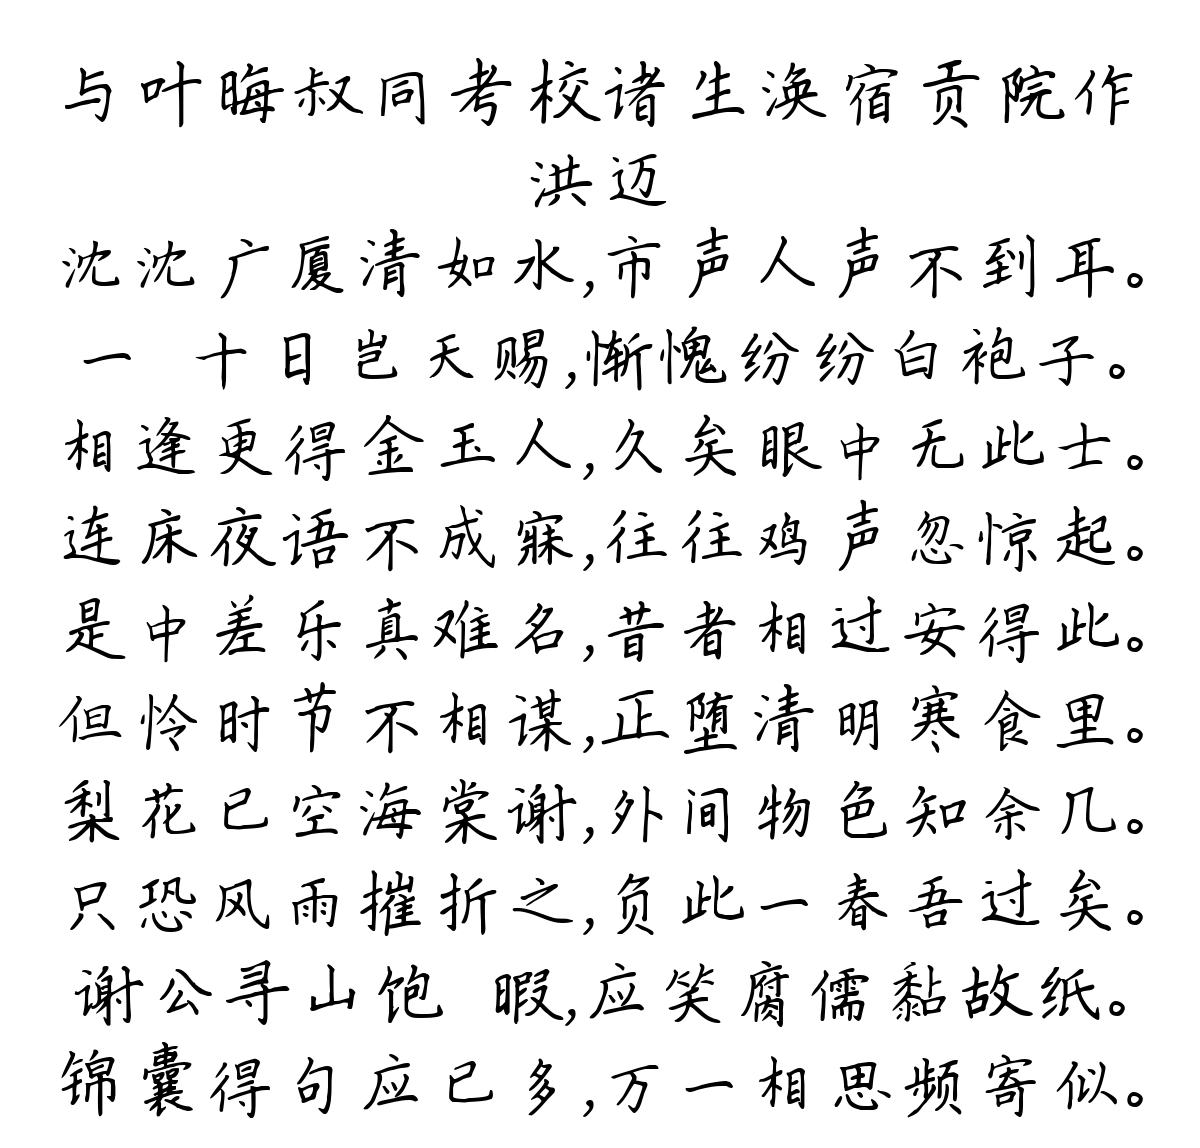 与叶晦叔同考校诸生涣宿贡院作
洪迈
沈沈广厦清如水,市声人声不到耳。
一 十日岂天赐,惭愧纷纷白袍子。
相逢更得金玉人,久矣眼中无此士。
连床夜语不成寐,往往鸡声忽惊起。
是中差乐真难名,昔者相过安得此。
但怜时节不相谋,正堕清明寒食里。
梨花已空海棠谢,外间物色知余几。
只恐风雨摧折之,负此一春吾过矣。
谢公寻山饱 暇,应笑腐儒黏故纸。
锦囊得句应已多,万一相思频寄似。